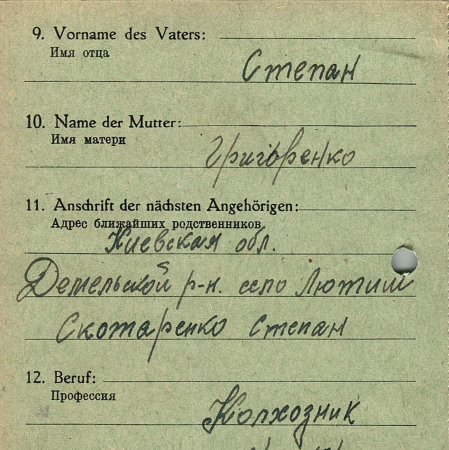 9. Vorname des Vaters:
Имя отца
Степан
10. Name der Mutter:
Имя матери
Григоренко
11. Anschrift der nächsten Angehörigen:
Адрес ближайших родственников
Киевская обл.
р-н. село Лютиш
Скотаренко Степан
12. Beruf:
Профессия
Колхозник